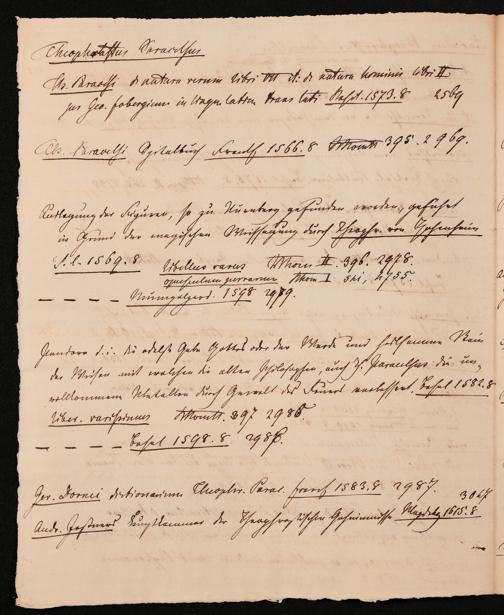 Theophrastus Paracelsus
Th. Paracelsi de natura rerum libri VII it: de natura hominis libri II
per Geo. Forbergium in linguam latinam translati Basil. 1573. 8 2569
Th. Paracelsi Spitalbuch Frankf 1566. 8 395. 2969.
Auslegung der Figuren, so zu Nürenberg gefunden worden, geführt
in Grund der magischen Weissagung durch Theophr. von Hohenheim
S. l. 1569. 8 libellus rarus II. 396. 2978.
opusculum I 2755.
– – – – 1598 2979.
Pandora d. i. die edelste Gabe Gottes oder der Werde und heilsamme Stein
der Weisen mit welchen die alten Philosophen, auch Th. Paracelsus die un,
vollkommene Metallen durch Gewalt des Feuers verbessert. Basel 1582. 8
liber rarissimus 397 2985
– – – – Basel 1598. 8 2986.
Ger. Dornei dictionarium Theophr. Parac. francf 1583. 8 2987.
3047
Andr. der Theophrastischen Geheimnisse Magdebg 1615. 8